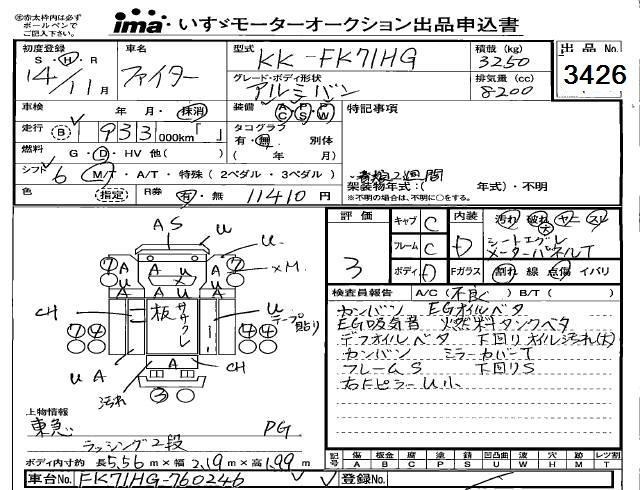 ㊟赤太枠内は必ず
ボールペンで
ご記入下さい。
ima いすゞモーターオークション出品申込書
初度登録 車名 型式 積載 (kg) 出品No.
S・H・R 14/11月 ファイター KK-FK71HG 3250
グレード・ボディ形状 排気量 (cc)
アルミバン 8200 3426
車検 年・月・抹消 装備 AC PS PW 特記事項
走行 (B) 933,000km「 」 タコグラフ
有・無 別体
燃料 G・D・HV 他( ) ( 年 月)
シフト 6 M/T・A/T・特殊(2ペダル・3ペダル)
書類2週間
架装物年式:( 年式)・不明
※不明の場合は、不明に○をする。
色 (指定) R券 有・無 11410円
評価 キャブ C 内装 汚れ 破れ ヤニ スレ
大
3 フレーム C D シートエグレ
メーターパネルT
ボディ D Fガラス 割れ 線 点傷 イバリ
AS
U U
A U A
xM
A U A
U A U A
CH 板 ササクレ U テープ貼り
⑦④ ④④
U A A CH
汚れ ③
検査員報告 A/C(不良) B/T( )
カンバン EGオイルベタ
EG吸気音 燃料タンクベタ
デフオイルベタ 下回りオイル汚れ(大)
カンバン ミラーカバーT
フレームS 下回りS
右FピラーU小
上物情報
東急 PG
ラッシング2段
ボディ内寸約 長5.56m×幅2.19m×高1.99m
記号 傷 板金 腐 塗 錆 凹凸曲 波 穴 無 レツ割
A B C P S U W H M T
車台No. FK71HG-760246 登録No.